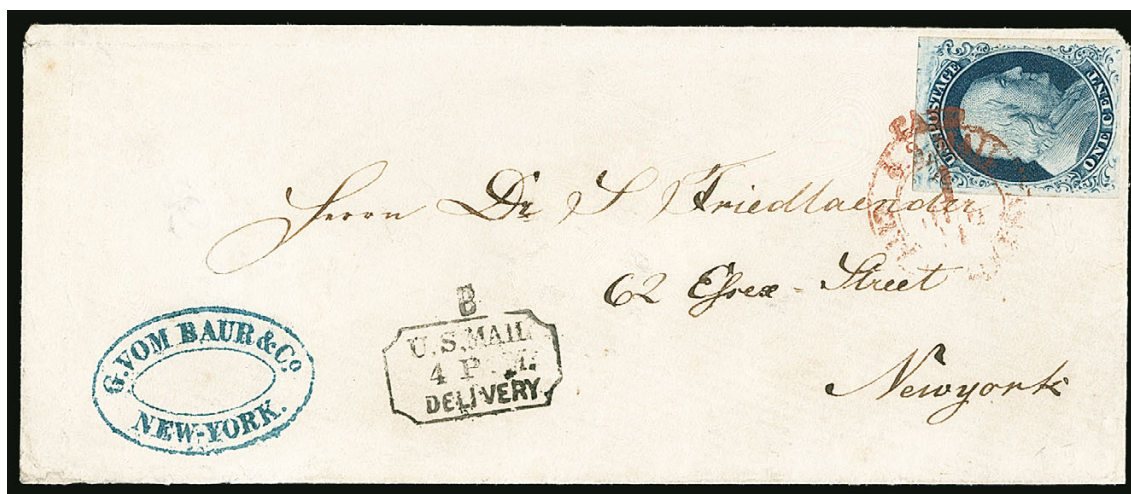 U.S. POSTAGE
ONE CENT
Herrn Dr. S. Friedlaender
62 Essex - Street
Newyork
G. VOM BAUR & Co
NEW-YORK.
B
U.S. MAIL.
4 P.M.
DELIVERY.